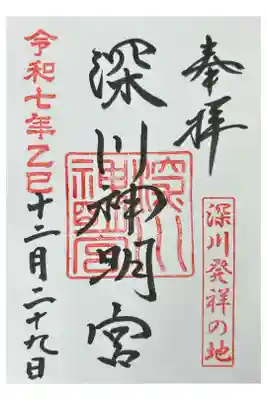 奉拝
深川発祥の地
深川神明宮
深川神明宮
令和七年乙巳十二月二十九日